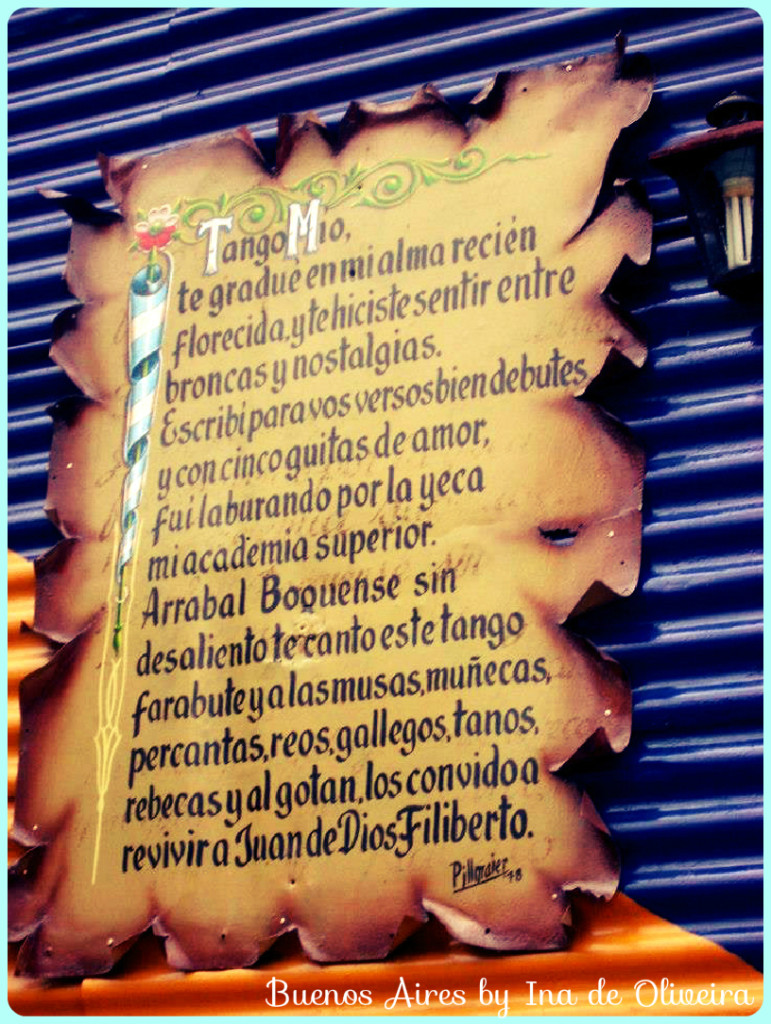 Tango Mio,
te gradué en mi alma recién
florecida, y te hiciste sentir entre
broncas y nostalgias.
Escribí para vos versos bien debutes
y con cinco guitas de amor,
fui laburando por la yeca
mi academia superior.
Arrabal Boquense sin
desaliento te canto este tango
farabute y a las musas, muñecas,
percantas, reos, gallegos, tanos,
rebecas y al gotan, los convido a
revivir a Juan de Dios Filiberto.
Buenos Aires by Ina de Oliveira